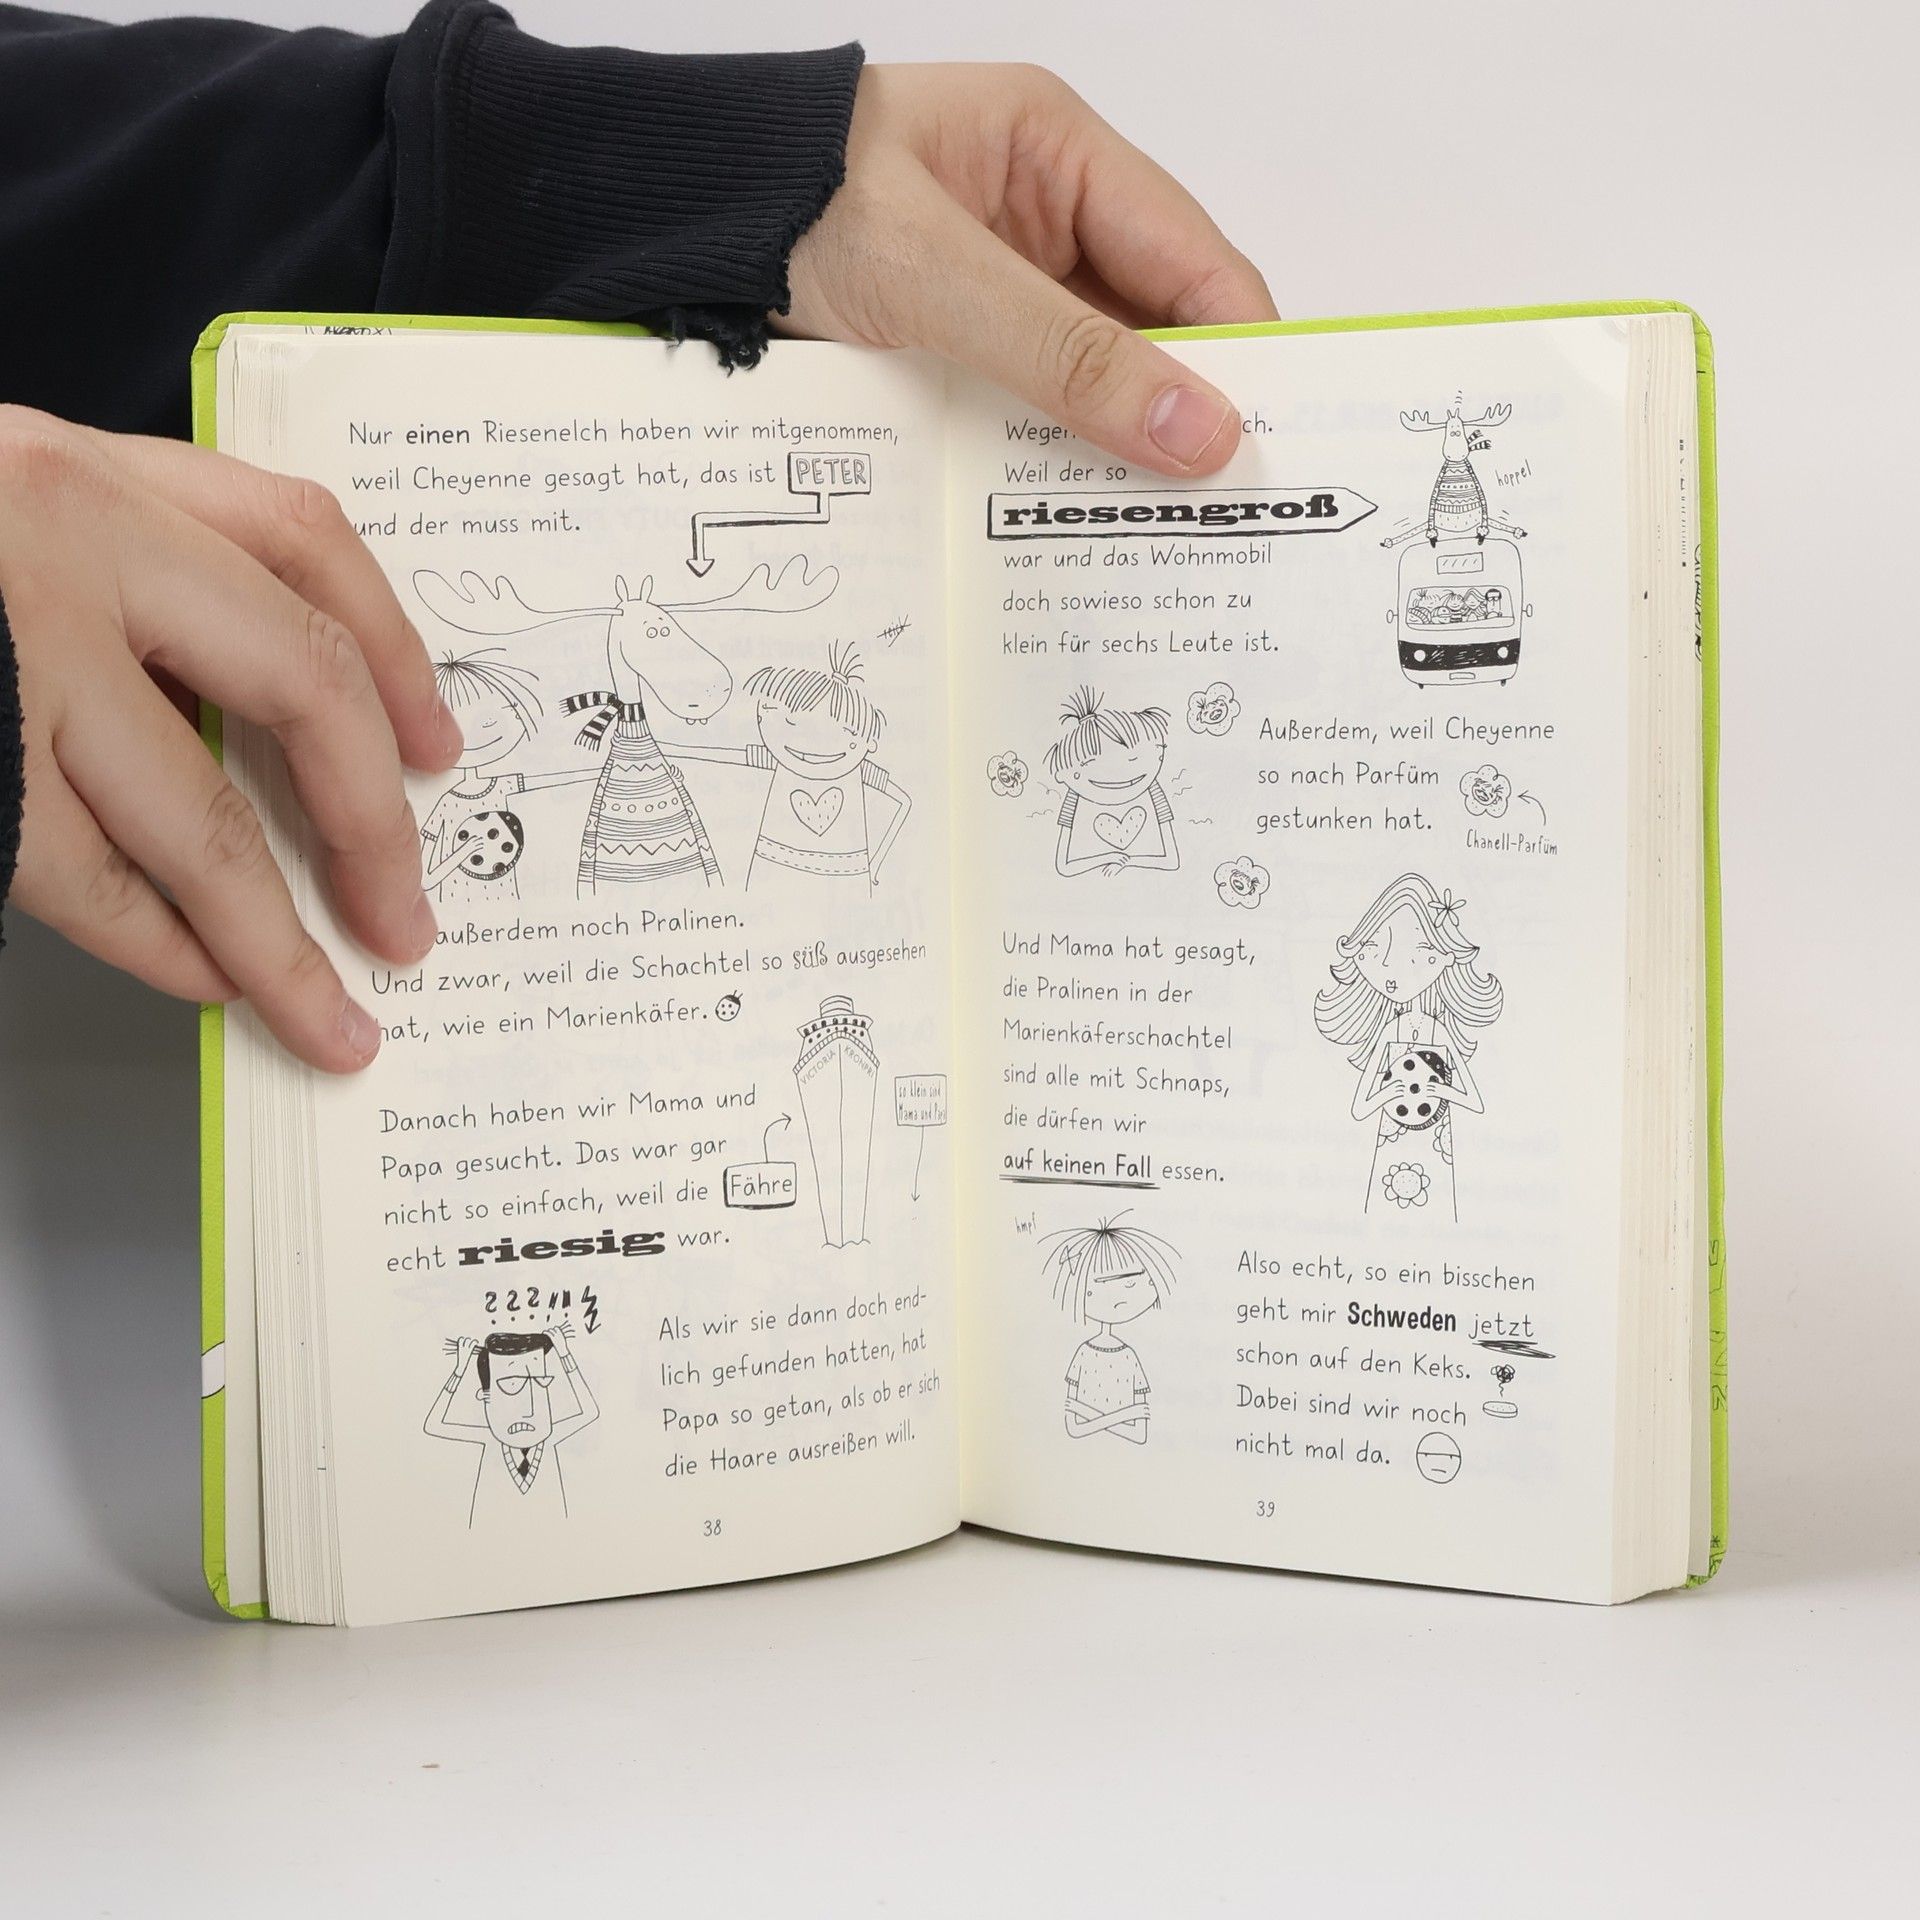 Nur einen Riesenelch haben wir mitgenommen,
weil Cheyenne gesagt hat, das ist PETER
und der muss mit.
außerdem noch Pralinen.
Und zwar, weil die Schachtel so süß ausgesehen
hat, wie ein Marienkäfer.
VICTORIA KRONPRI
so klein sind
Mama und Papa
Danach haben wir Mama und
Papa gesucht. Das war gar
nicht so einfach, weil die Fähre
echt riesig war.
???!!!
Als wir sie dann doch end-
lich gefunden hatten, hat
Papa so getan, als ob er sich
die Haare ausreißen will.
38
Weil der so
riesengroß
war und das Wohnmobil
doch sowieso schon zu
klein für sechs Leute ist.
hoppel
Außerdem, weil Cheyenne
so nach Parfüm
gestunken hat.
Chanell-Parfüm
Und Mama hat gesagt,
die Pralinen in der
Marienkäferschachtel
sind alle mit Schnaps,
die dürfen wir
auf keinen Fall essen.
hmpf
Also echt, so ein bisschen
geht mir Schweden jetzt
schon auf den Keks.
Dabei sind wir noch
nicht mal da.
39